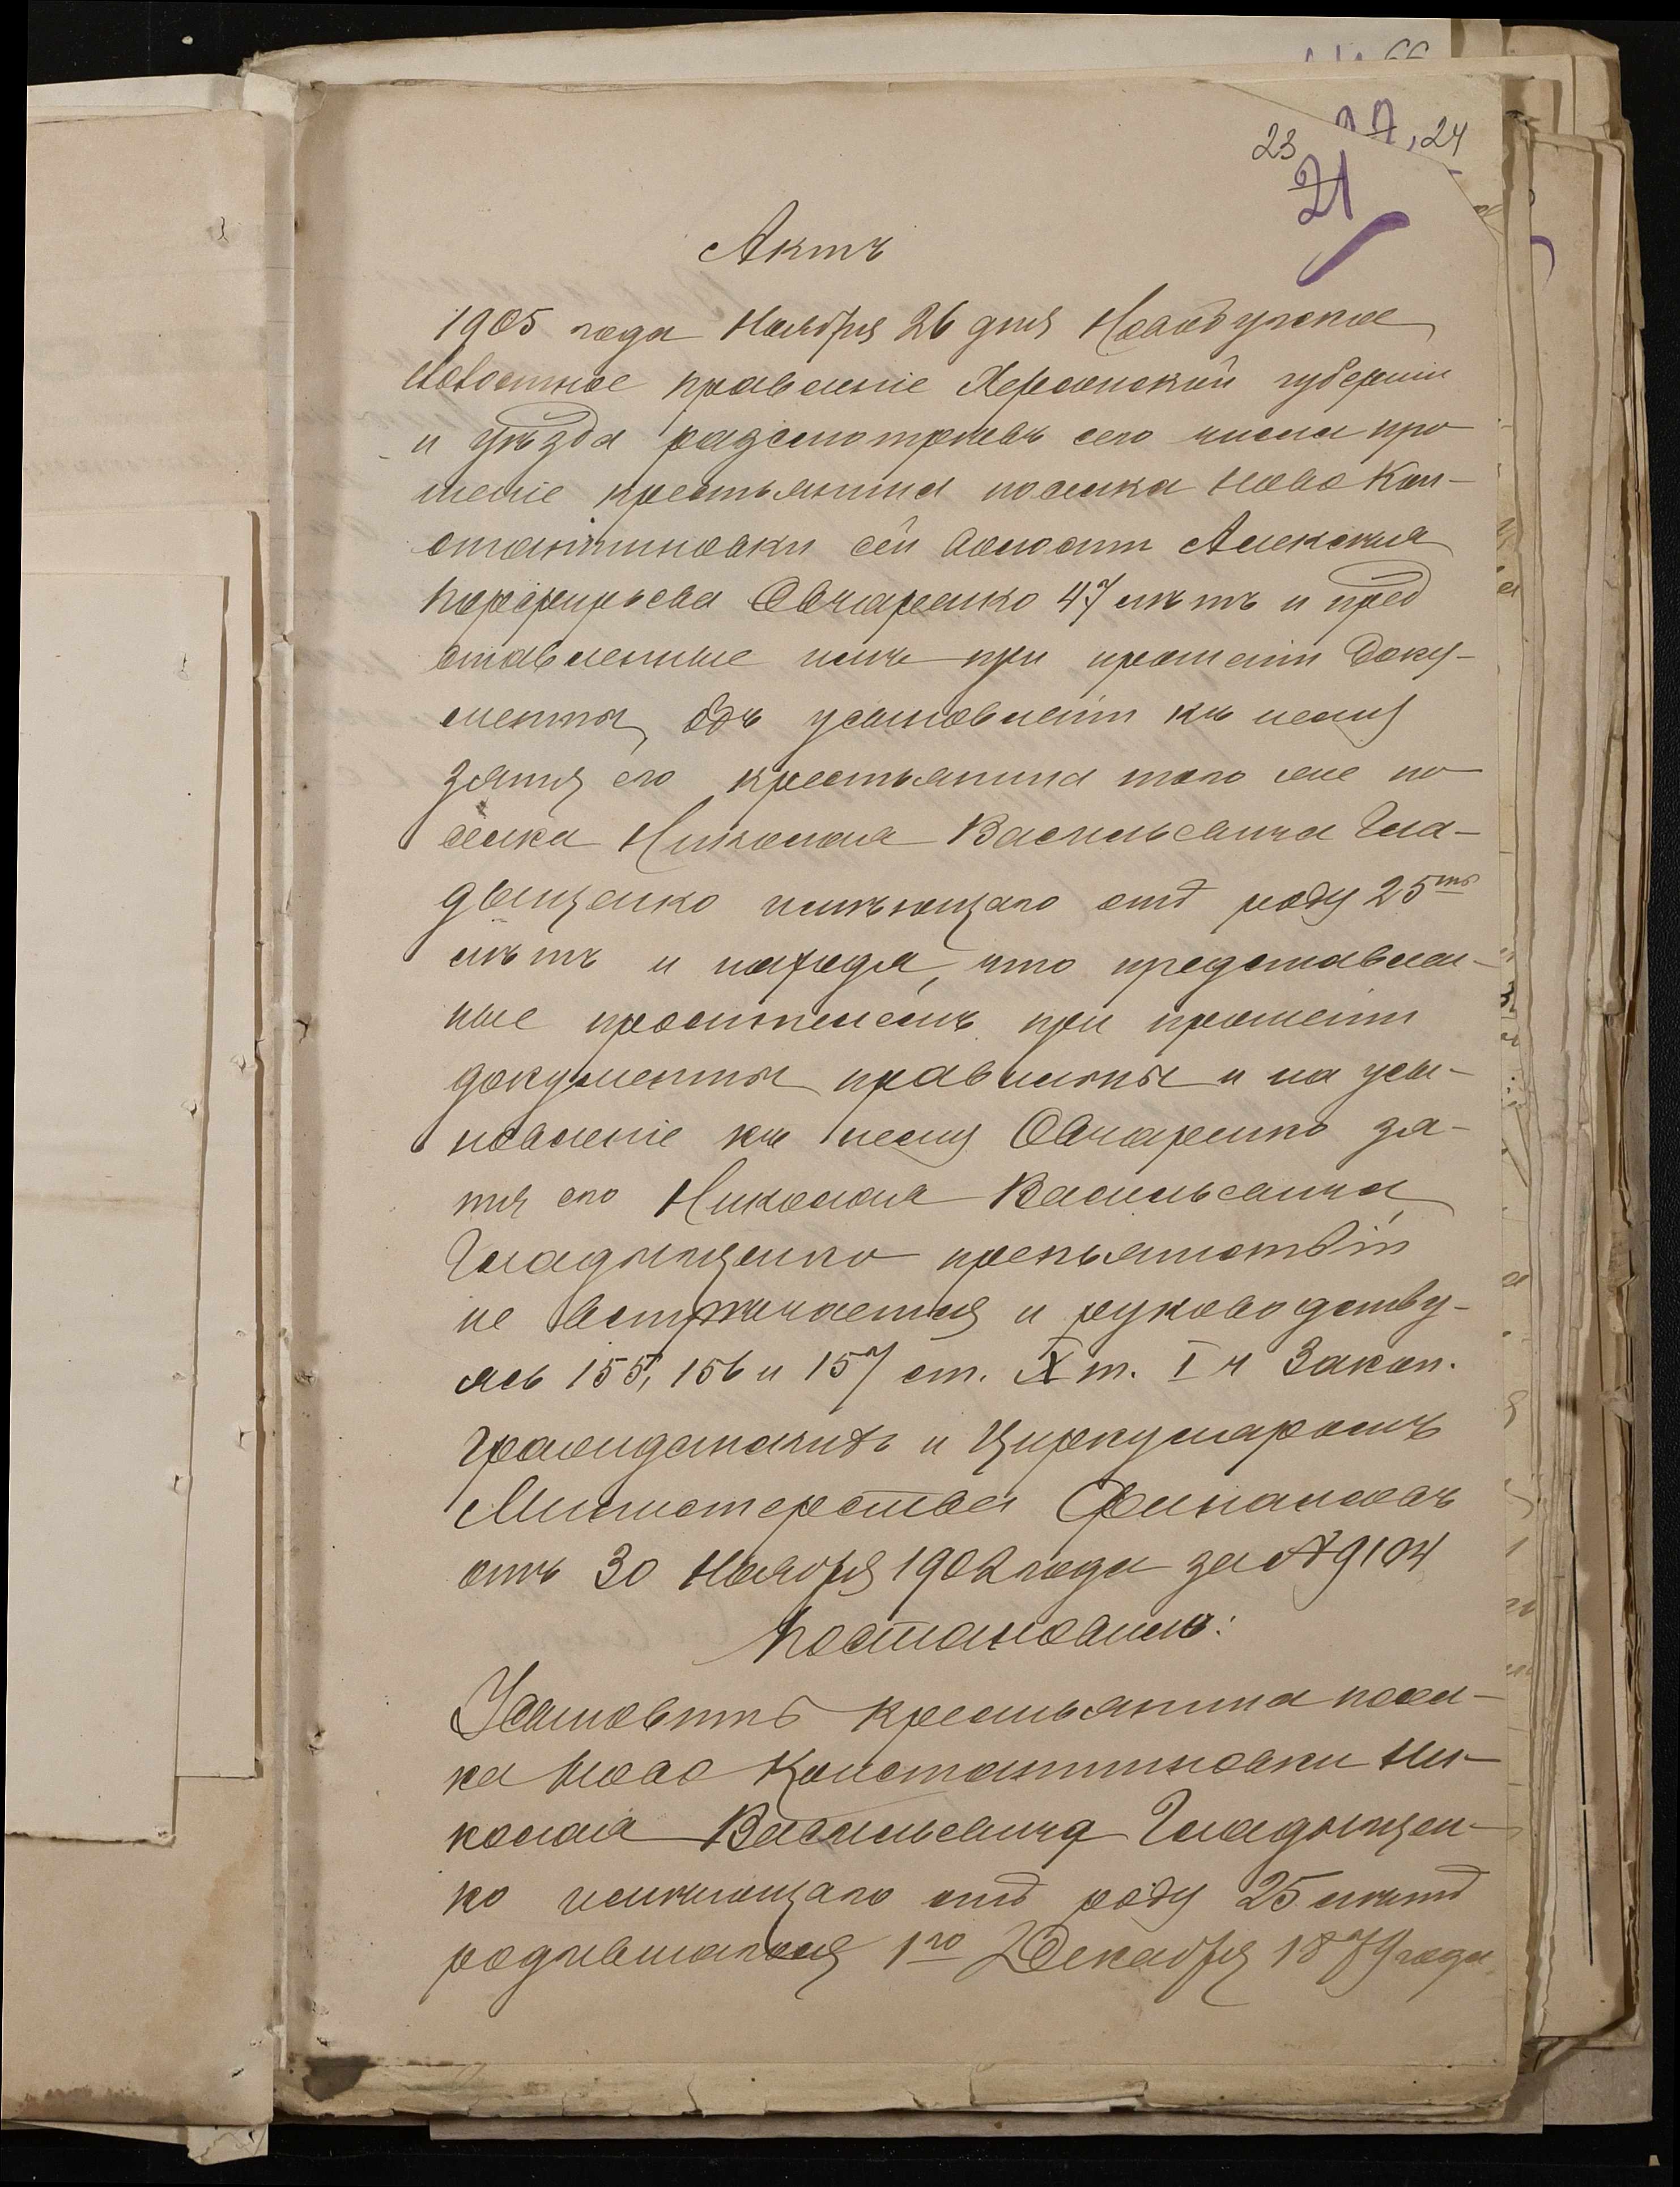 23
21
24
Актъ
1905 года Ноября 26 дня Новобугское
волостное правленіе Херсонской губерніи
и уѣзда разсмотрѣвъ сего числа про
шеніе крестьянина поселка Ново Кон-
стантиновки сей волости Алексѣя
Порфирьева Овчаренко 47 лѣтъ и пред
ставленные имъ при прошеніи доку-
менты, объ усыновленіи къ нему
зятя его крестьянина того же по
селка Николая Васильевича Гла-
дыщенко имѣющаго отъ роду 25ть
лѣтъ и находя, что представлен-
ные просителемъ при прошеніи
документы правильны и на усы-
новленіе къ нему Овчаренко зя-
тя его Николая Васильевича
Гладыщенко препьятствій
не встрѣчается и руководству-
ясь 155, 156 и 157 ст. X т. I ч Закон.
Гражданскихъ и Циркуляромъ
Министерства Финансовъ
отъ 30 Ноября 1902 года за № 9104
Постановилъ:
Усыновить крестьянина посел-
ка Ново Константиновки Ни-
колая Васильевича Гладыщен-
ко имѣющаго отъ роду 25 лѣтъ
родившагося 1го Декабря 1879 года